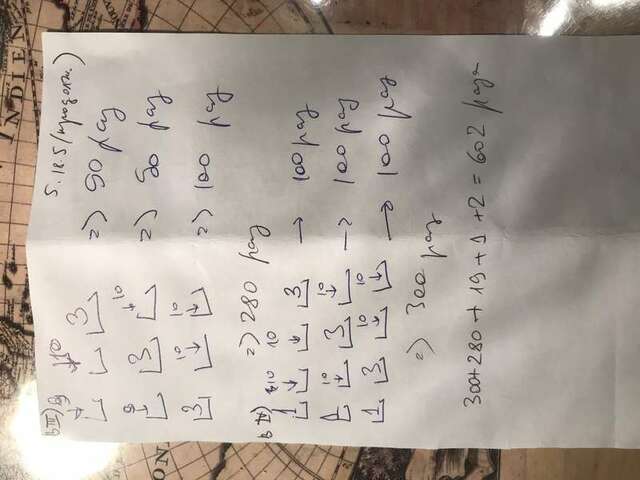 NDIEN
5.18.5 (продолж.)
в III) 9 10
3 => 90 раз
9 3 10 => 90 раз
3 10 10 => 100 раз
=> 280 раз
в IV)
1 10 10 3 → 100 раз
1 10 3 10 → 100 раз
1 3 10 10 → 100 раз
=> 300 раз
300+280+19+1+2=602 раза